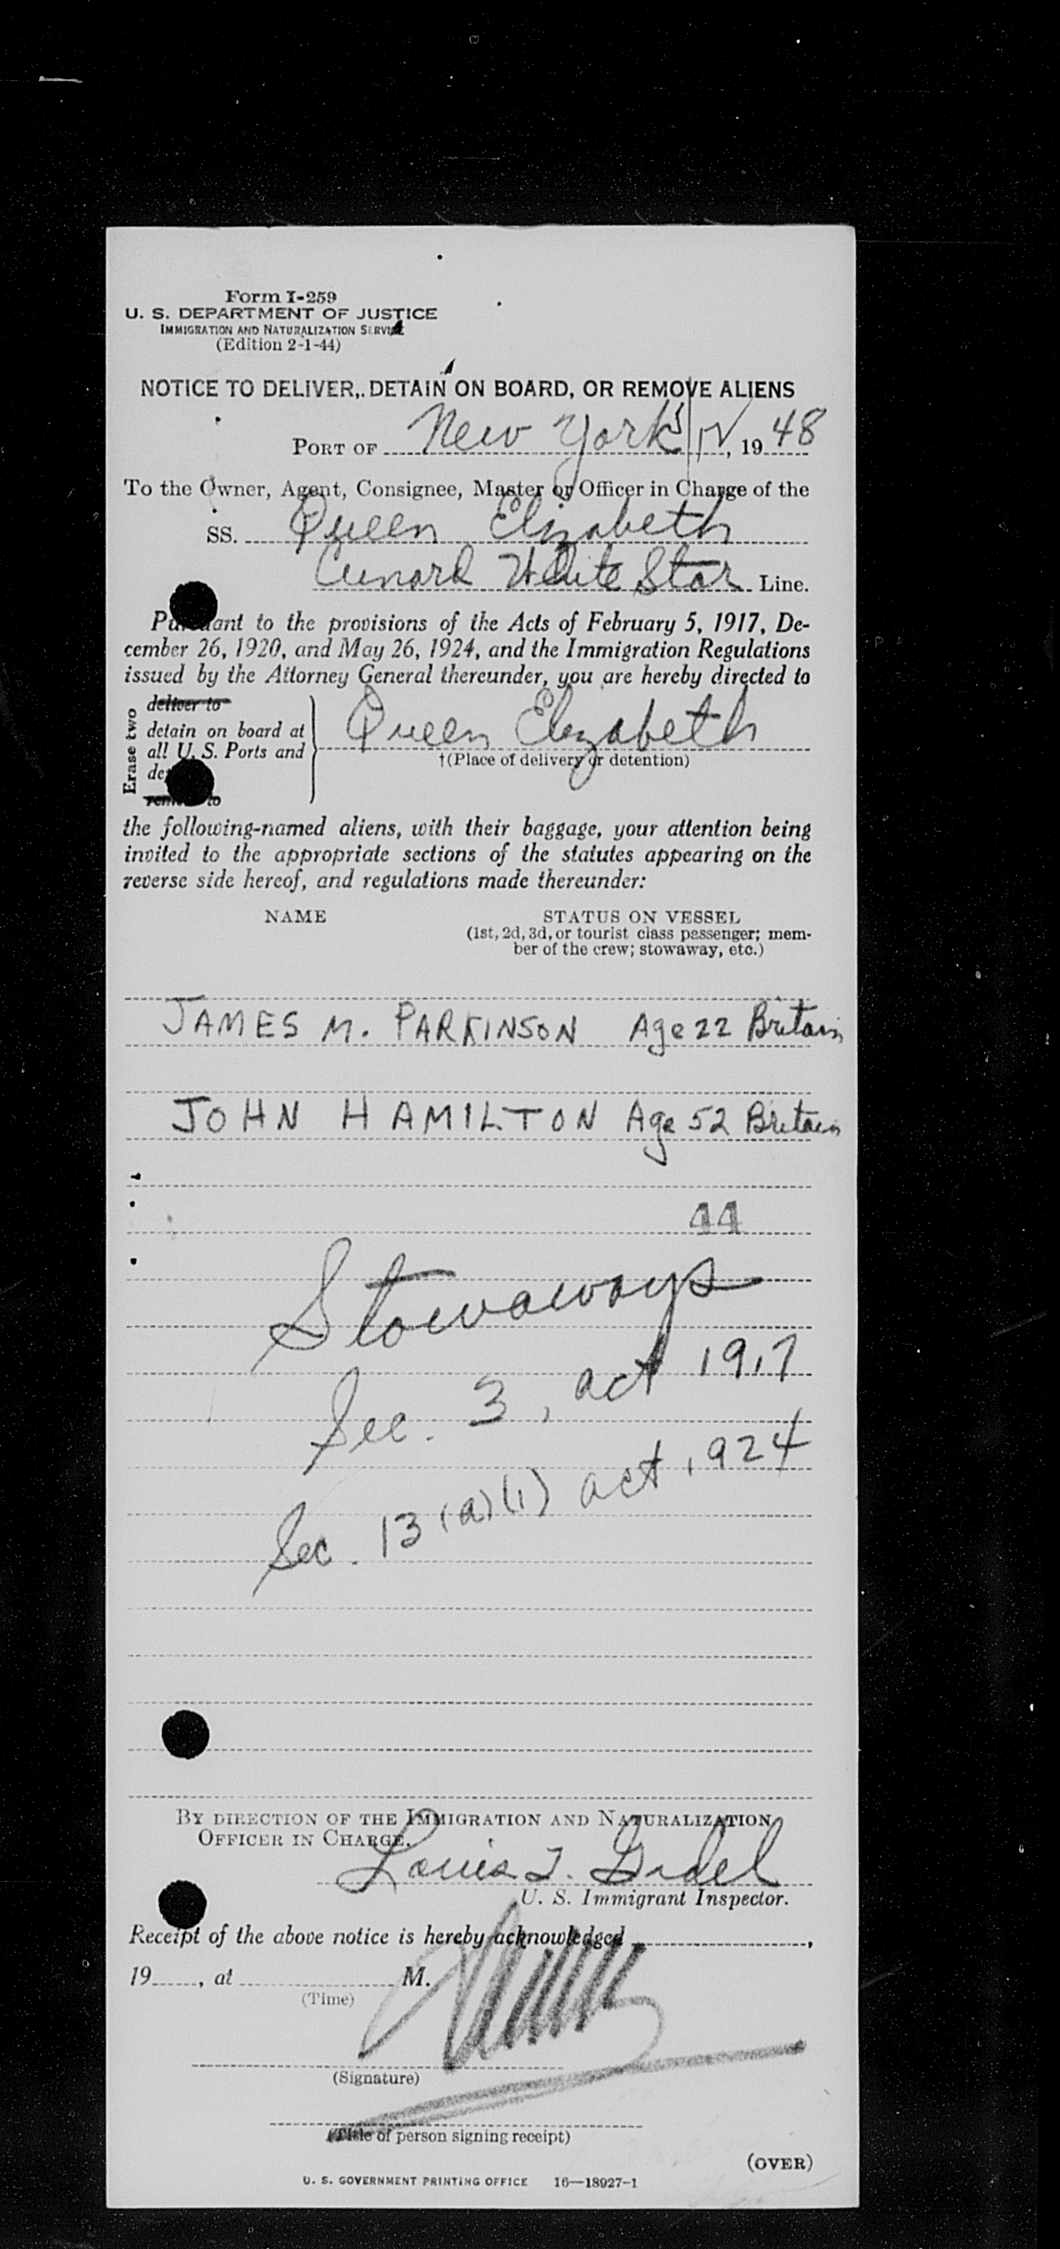 Form I-259
U. S. DEPARTMENT OF JUSTICE
IMMIGRATION AND NATURALIZATION SERVICE
(Edition 2-1-44)
NOTICE TO DELIVER, DETAIN ON BOARD, OR REMOVE ALIENS
PORT OF New York, 1948
To the Owner, Agent, Consignee, Master or Officer in Charge of the
SS. Queen Elizabeth
Cunard White Star Line.
Pursuant to the provisions of the Acts of February 5, 1917, De-
cember 26, 1920, and May 26, 1924, and the Immigration Regulations
issued by the Attorney General thereunder, you are hereby directed to
Erase two
deliver to
detain on board at
all U. S. Ports and
remove to
Queen Elizabeth
†(Place of delivery or detention)
the following-named aliens, with their baggage, your attention being
invited to the appropriate sections of the statutes appearing on the
reverse side hereof, and regulations made thereunder:
NAME STATUS ON VESSEL
(1st, 2d, 3d, or tourist class passenger; mem-
ber of the crew; stowaway, etc.)
JAMES M. PARKINSON Age 22 Britain
JOHN HAMILTON Age 52 Britain
44
Stowaways
Sec. 3, act 1917
Sec. 13 (a)(1) act 1924
BY DIRECTION OF THE IMMIGRATION AND NATURALIZATION
OFFICER IN CHARGE.
Louis
U. S. Immigrant Inspector.
Receipt of the above notice is hereby acknowledged ,
19 , at M.
(Time)
(Signature)
(Title of person signing receipt)
(OVER)
U. S. GOVERNMENT PRINTING OFFICE 16—18927-1